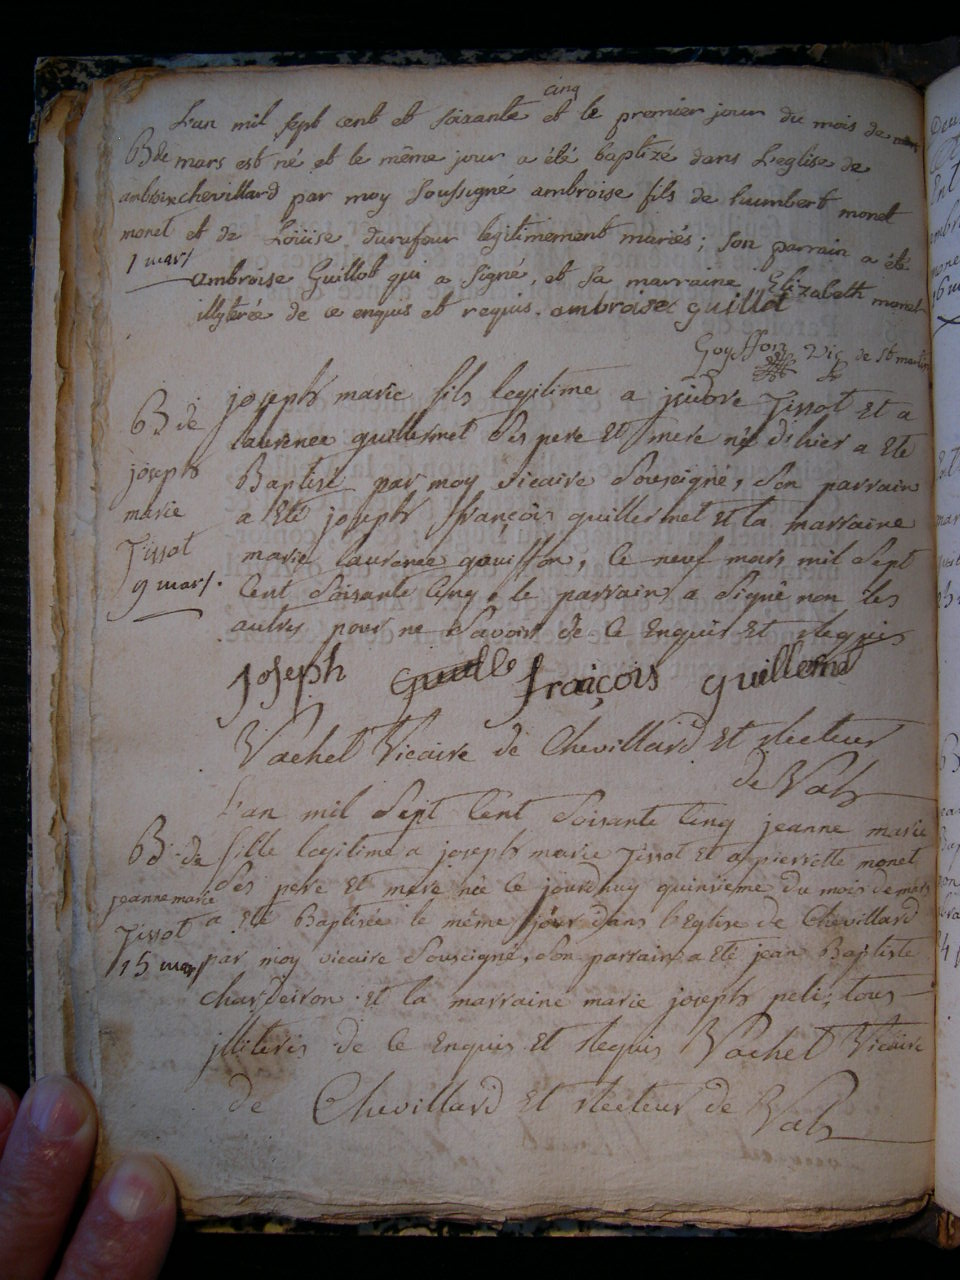 cinq
L'an mil sept cent et soixante et le premier jour du mois de
B de mars est né et le même jour a été baptizé dans L'eglise de
chevillard par moy soussigné ambroise fils de humbert monet
monet et de Loüise durafour legitimement mariés; son parrain a été
1 mars
ambroise Guillot qui a signé, et sa marraine Elizabeth monet
illyterée de ce enquis et requis. ambroise guillot
Goyffon Vic de st martin
B de
joseph
marie
Tissot
9 mars.
joseph marie fils legitime a jsidore Tissot Et a
laurence guillermet ses pere Et mere né d'hier a Eté
Baptisé par moy vicaire Sousigné, Son parrain
a Eté joseph françois guillermet Et la marraine
marie laurence gouiffon, Ce neuf mars mil Sept
Cent Soisante Cinq, le parrain a Signé non les
autres pour ne Savoir de Ce Enquis Et Requis
joseph guille fraiçois guillemet
Vachet Vicaire de Chevillard Et Recteur
de Vah
B de
jeanne marie
Tissot
15 mars
L'an mil Sept Cent Soisante Cinq jeanne marie
fille legitime a joseph marie Tissot Et a pierrette monet
Ses pere Et mere née le jourdhuy quinsieme du mois de mars
a Eté Baptisée le même jour dans l'Eglise de Chevillard
par moy vicaire Sousigné, Son parrain a Eté jean Baptiste
Chardeiron Et la marraine marie joseph peli, tous
jlliteris de Ce Enquis Et Requis Vachet Vicaire
de Chevillard Et Recteur de Vah